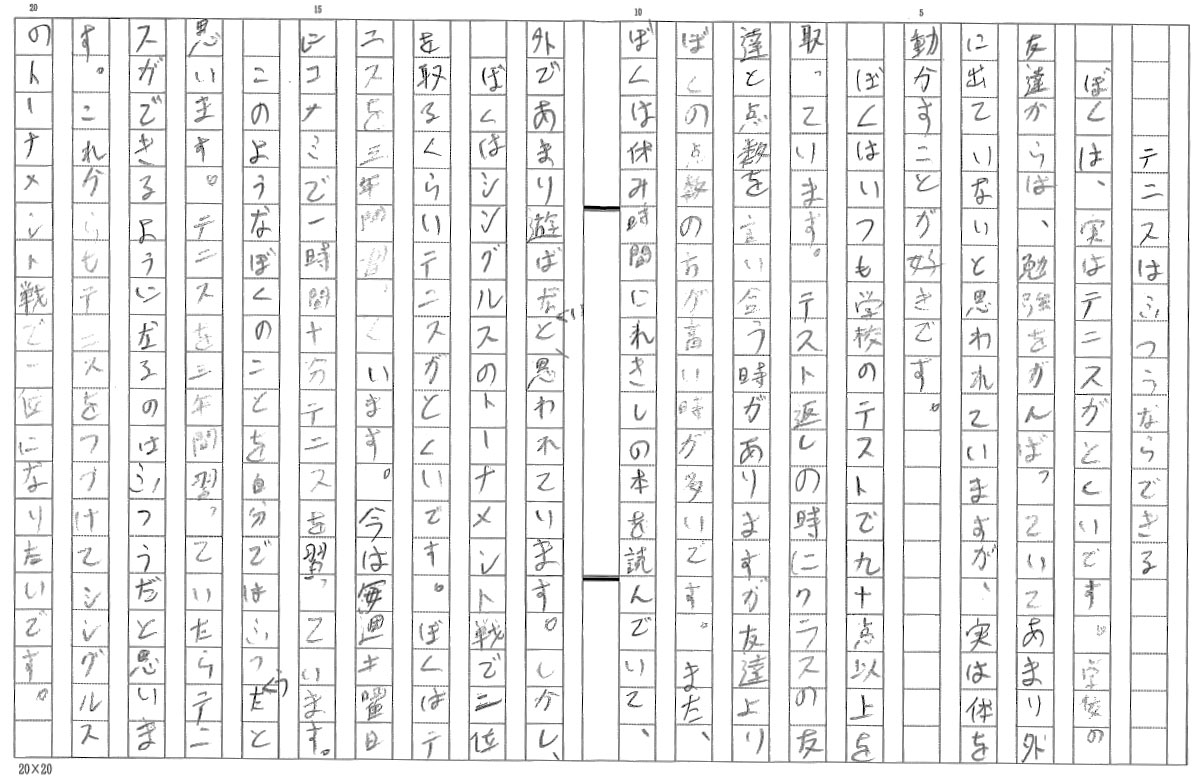 テニスはふつうならできる
ぼくは、実はテニスがとくいです。学校の
友達からは、勉強をがんばっていてあまり外
に出ていないと思われていますが、実は体を
動かすことが好きです。
ぼくはいつも学校のテストで九十点以上を
取っています。テスト返しの時にクラスの友
達と点数を言い合う時がありますが友達より
ぼくの点数の方が高い時が多いです。また、
ぼくは休み時間にれきしの本を読んでいて、
外であまり遊ばないと、思われています。しかし、
ぼくはシングルスのトーナメント戦で二位
を取るくらいテニスがとくいです。ぼくはテ
ニスを三年間習っています。今は毎週土曜日
にコナミで一時間十分テニスを習っています。
このようなぼくのことを自分ではふつうだと
思います。テニスを三年間習っていたらテニ
スができるようになるのはふつうだと思いま
す。これからもテニスをつづけてシングルス
のトーナメント戦で一位になりたいです。
5
10
15
20
20×20